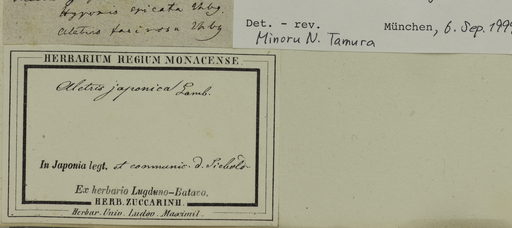 Hypoxis ericata Thbg.
Aletris farinosa Thbg
Det. - rev. München, 6. Sep. 1999
Minoru N. Tamura
HERBARIUM REGIUM MONACENSE.
Aletris japonica Lamb.
In Japonia legt. et communic. d. Siebold
Ex herbario Lugduno-Batavo.
HERB. ZUCCARINII.
Herbar. Univ. Ludov. Maximil.